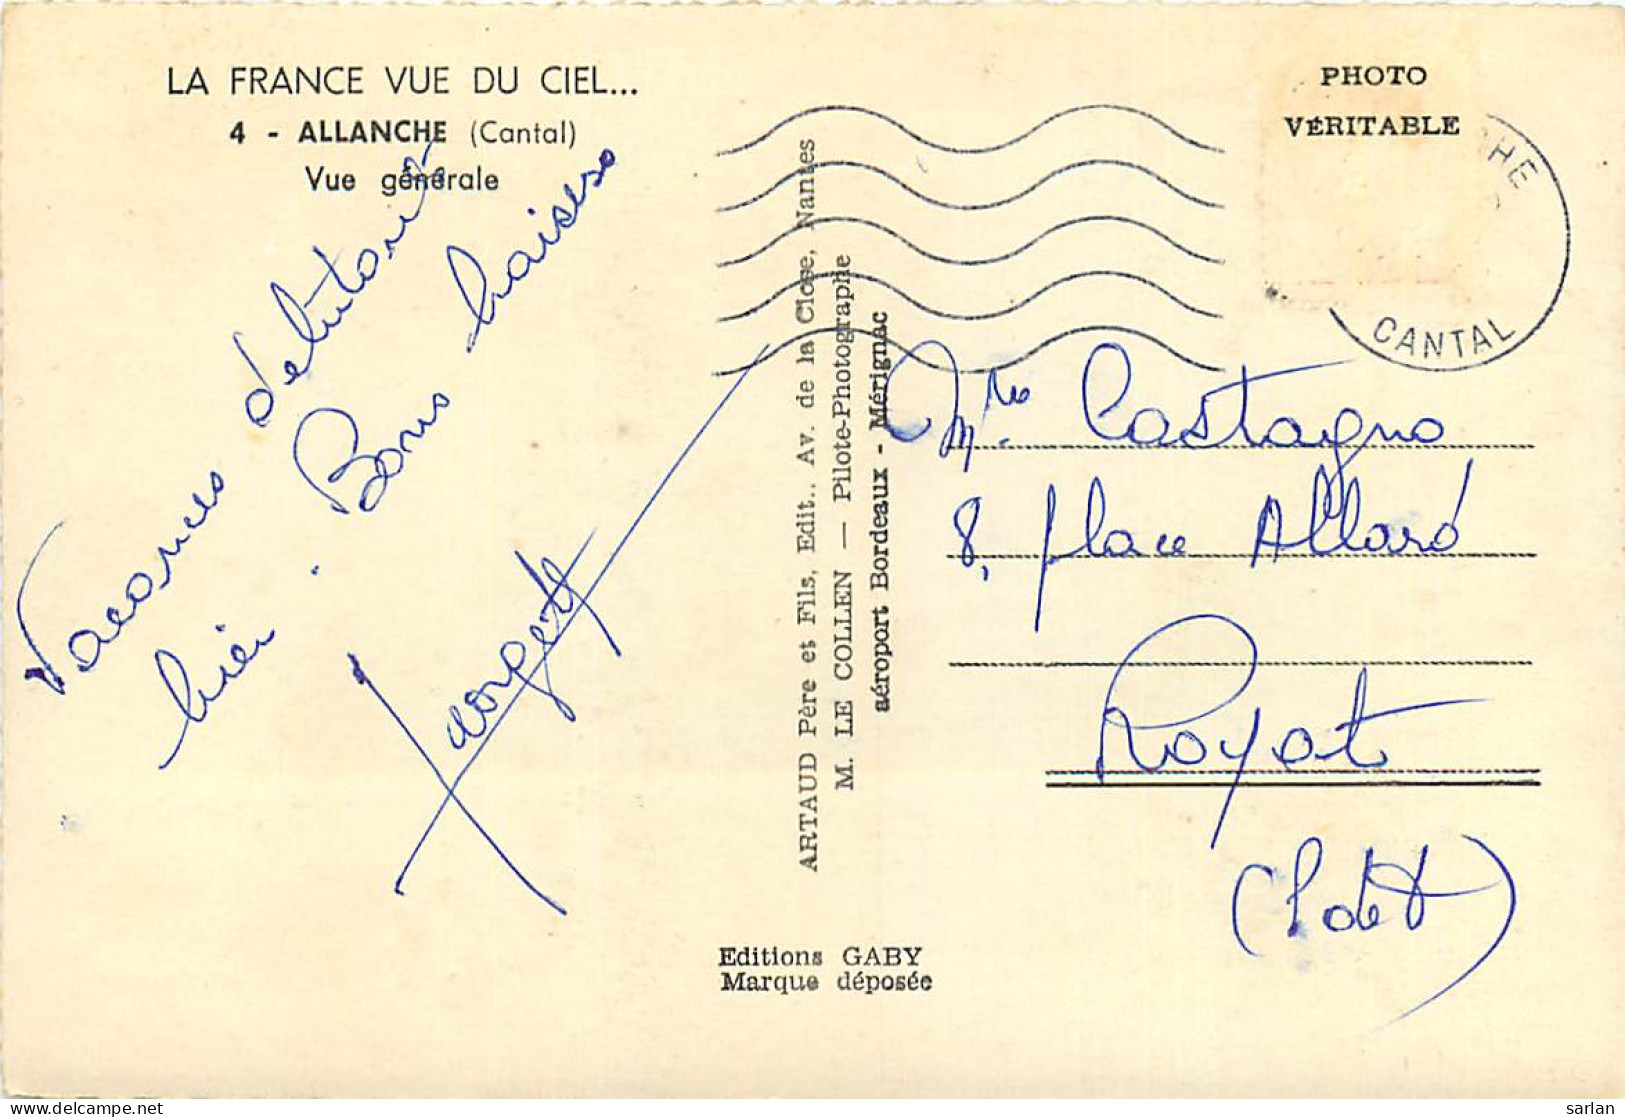 LA FRANCE VUE DU CIEL...
4 - ALLANCHE (Cantal)
Vue générale
Vacances debutoris
bien. Bons baisers
Georgette
ARTAUD Père et Fils, Edit., Av. de la Close, Nantes
M. LE COLLEN — Pilote-Photographe
aéroport Bordeaux - Mérignac
Editions GABY
Marque déposée
PHOTO
VÉRITABLE
CHE
CANTAL
Castagno
8, place Allard
Royat
(P de D)
sarlan